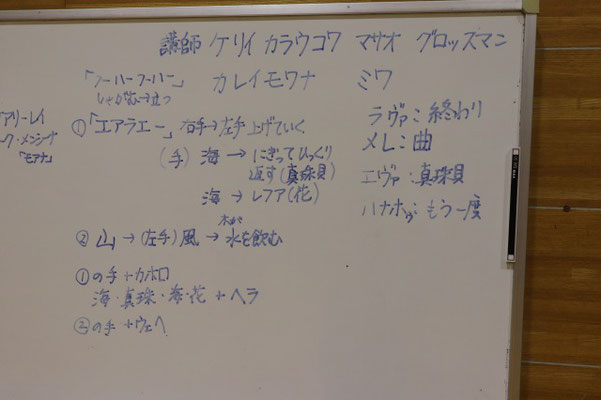 講師 ケリイ カラウコワ マサオ グロッズマン
「フーハーフーハー」 カレイモワナ ミワ
しゃがむ→立つ
アリーレイ
ーク・メンシーナ
「モアナ」
①「エアラエー」右手→左手上げていく
(手) 海 → にぎってひっくり
返す(真珠貝)
海 → レフア(花)
木が
② 山 → (左手)風 → 水を飲む
①の手+カホロ
海・真珠・海・花 + ヘラ
②の手+ウェヘ
ラヴァ:終わり
メレ:曲
エヴァ:真珠貝
ハナホゥ:もう一度